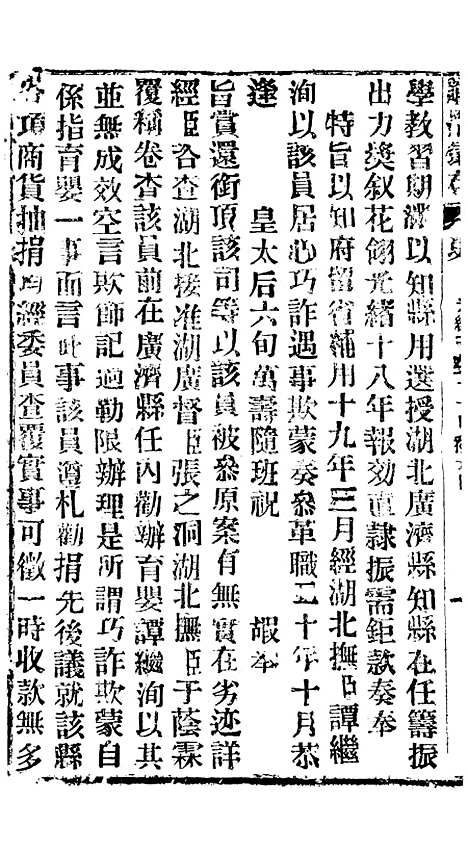 學教習期滿以知縣用選授湖北廣濟縣知縣在任籌振
出力獎叙花翎光緒十八年報効直隸振需鉅款奏奉
特旨以知府留省補用十九年三月經湖北撫臣譚繼
洵以該員居心巧詐遇事欺蒙奏參革職二十年十月恭
逢 皇太后六旬萬壽隨班祝 嘏奉
旨賞還銜項該司等以該員被參原案有無實在劣迹詳
經臣咨查湖北接准湖廣督臣張之洞湖北撫臣于蔭霖
覆稱卷查該員前在廣濟縣任內勸辦育嬰譚繼洵以其
並無成效空言欺飾記過勒限辦理是所謂巧詐欺蒙自
係指育嬰一事而言此事該員遵札勸捐先後議就該縣
各項商貨抽捐均經委員查覆實事可徵一時收款無多